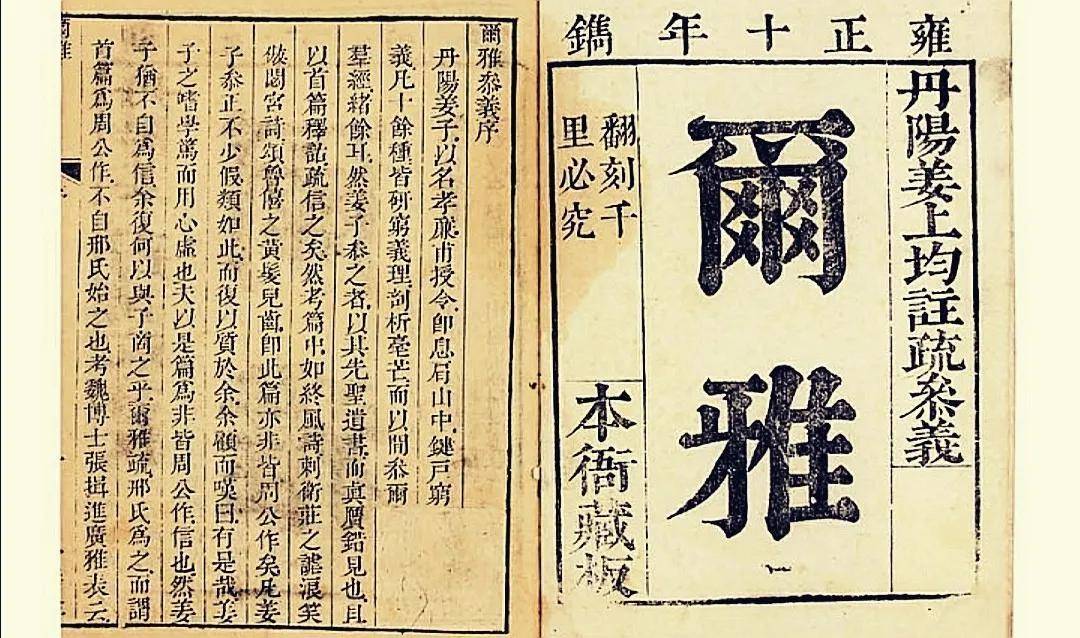 雍正十年鐫
丹陽姜上均註疏叅義
爾雅
一
翻刻千
里必究
本衙藏板
爾雅叅義序
丹陽姜子以名孝亷甫授令卽息肩山中鍵戸窮
義凡十餘種皆硏窮義理剖析毫芒而以間叅爾
羣經緒餘耳然姜子叅之者以其先聖遺書而眞贋錯見也且
以首篇釋詁疏信之矣然考篇中如終風詩刺衛莊之謔浪笑
傲閟宮詩頌魯僖之黃髮兒齒卽此篇亦非皆周公作矣凡姜
子叅正不少假類如此而復以質於余余顧而嘆曰有是哉姜
子之嗜學篤而用心虛也夫以是篇爲非皆周公作信也然姜
子猶不自爲信余復何以與子商之乎爾雅疏邢氏爲之而謂
首篇爲周公作不自邢氏始之也考魏博士張揖進廣雅表云
爾雅